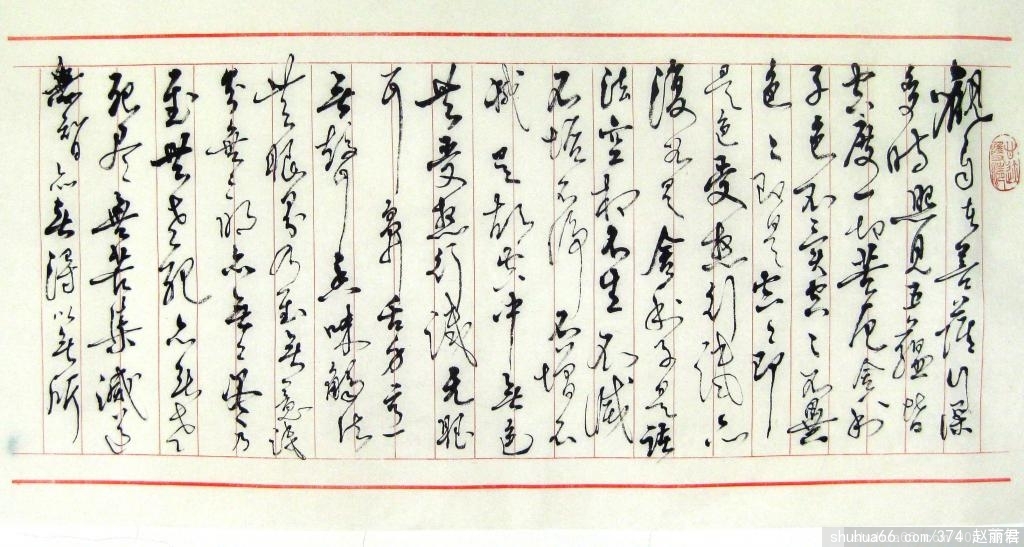 觀自在菩薩行深
多時照見五蘊皆
空度一切苦厄舍利
子色不異空々不異
色々即是空々即
是色受想行識亦
復如是舍利子是諸
法空相不生不滅
不垢不淨不增不
減是故空中無色
無受想行識无眼
耳鼻舌身意
無聲香味觸法
無眼界乃至無意識
界無々明亦無々盡乃
至無老死亦無老
死盡無苦集滅道
無智亦無得以無所
shuhua66.com/374 赵丽君